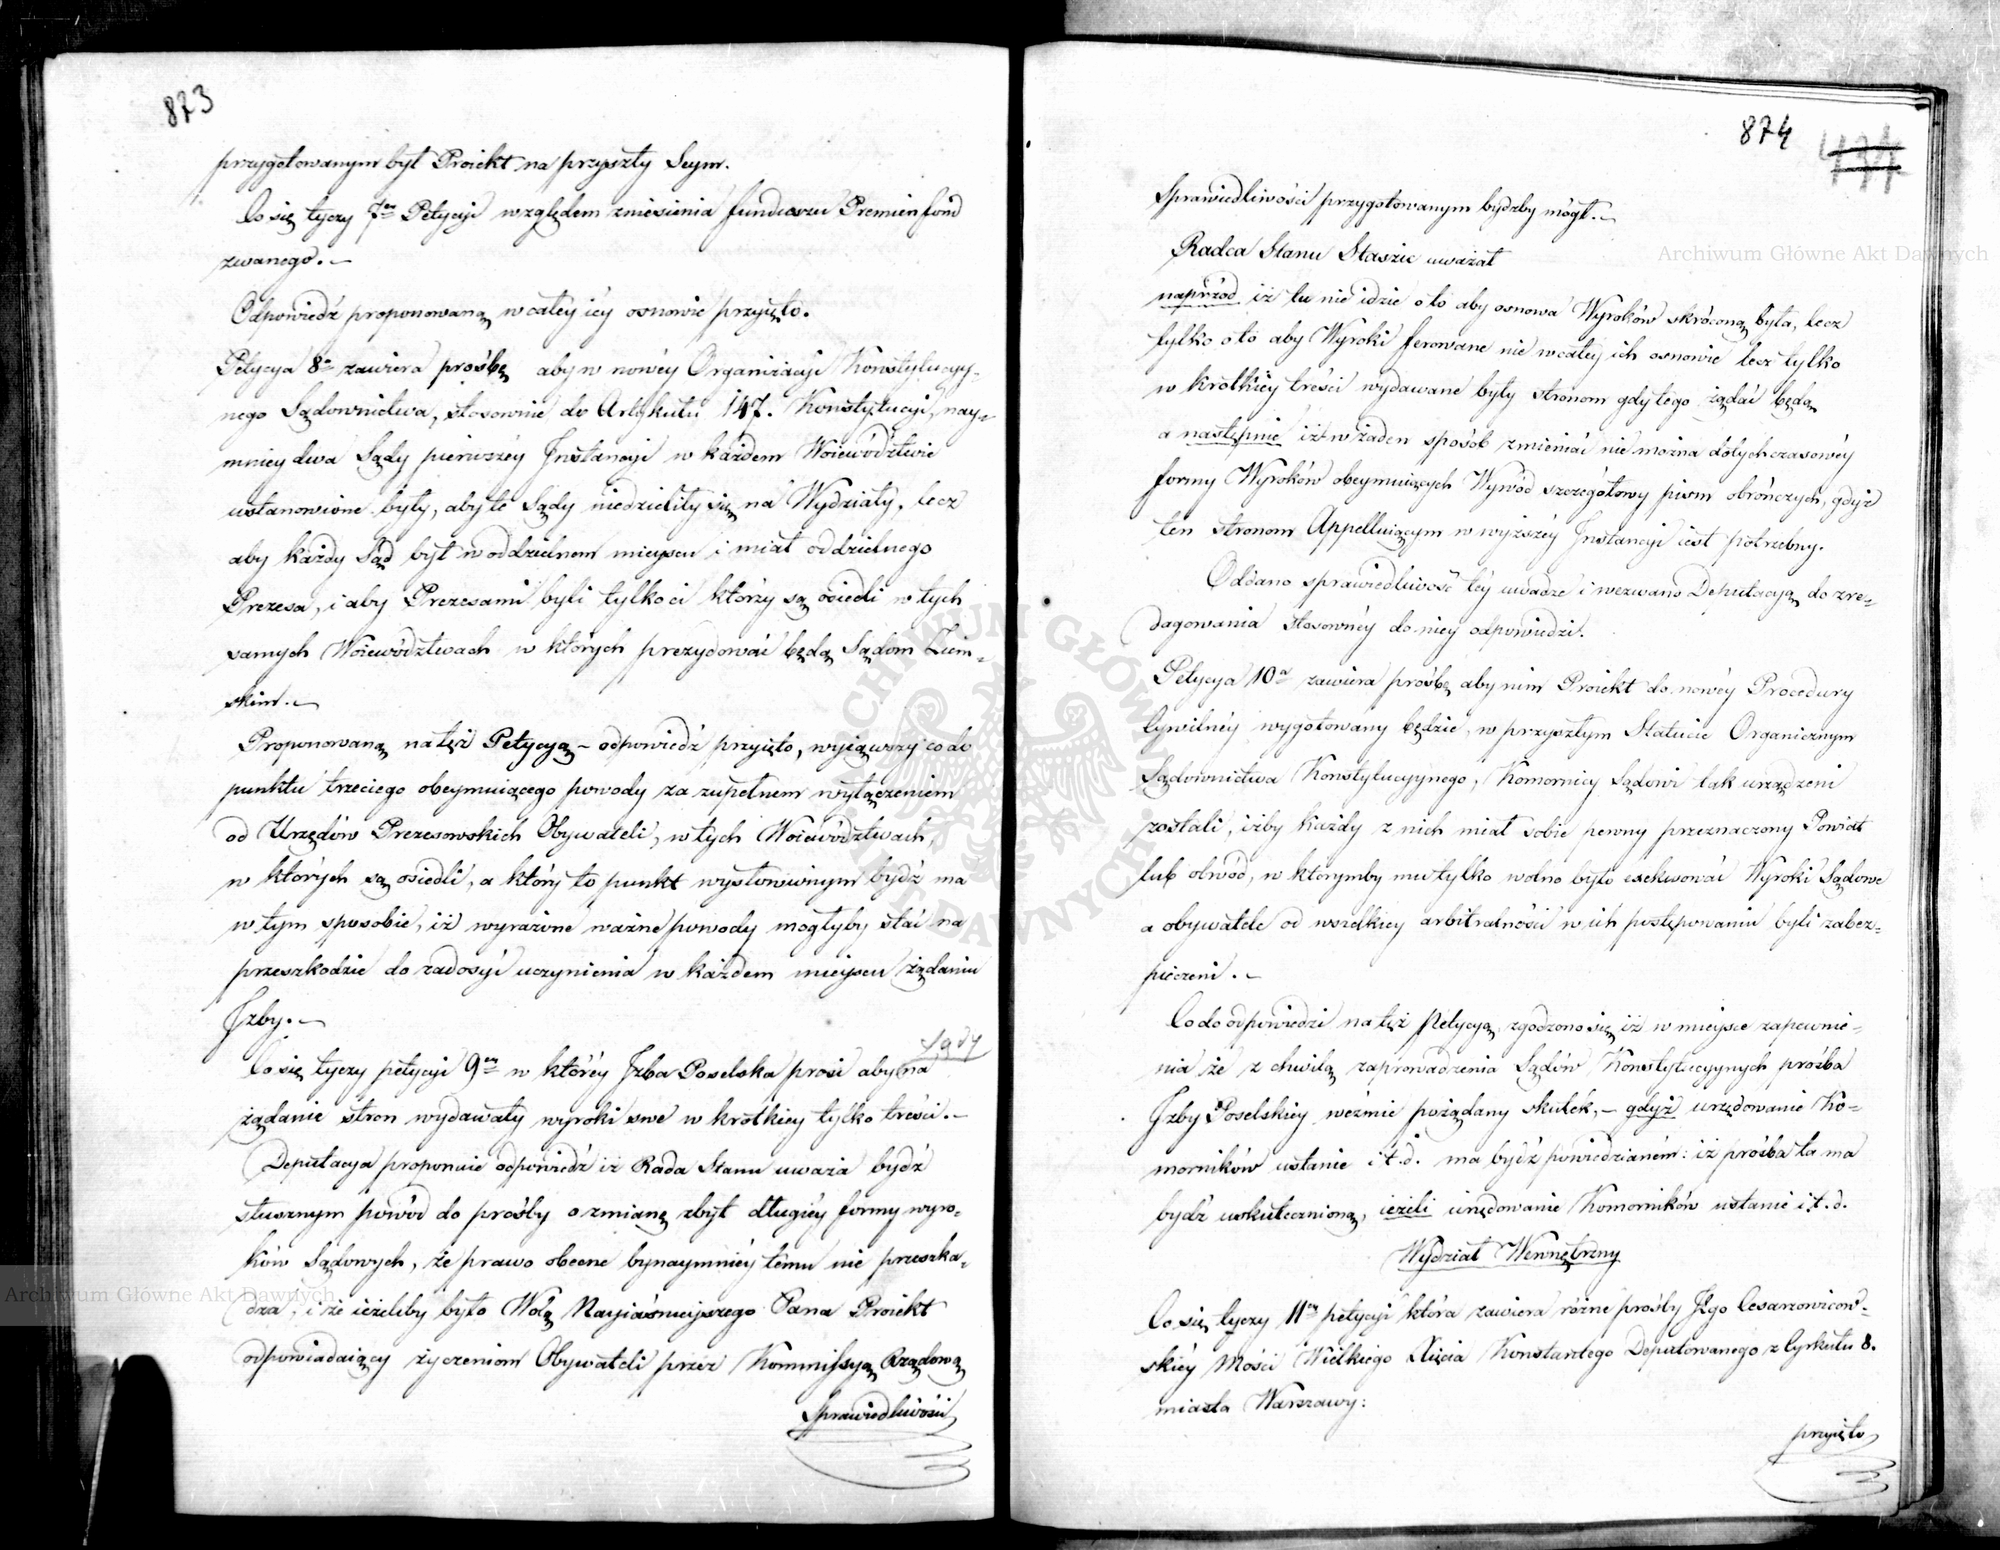 873
przygotowanym był Proiekt na przyszły Seym.
Co się tyczy 7ey Petycyi względem zniesienia funduszu Premienfond
zwanego.
Odpowiedź proponowaną w całey iey osnowie przyięto.
Petycya 8a zawiera prośbę aby w nowéy Organizacyi Konstytucyy-
nego Sądownictwa, stosownie do Artykułu 147. Konstytucyi, nay-
mniey dwa Sądy pierwszéy Instancyi w każdem Woiewództwie
ustanowione były, aby te Sądy niedzieliły się na Wydziały, lecz
aby każdy Sąd był w oddzielnem mieyscu i miał oddzielnego
Prezesa, i aby Prezesami byli tylko ci którzy są osiedli w tych
samych Woiewództwach w których prezydować będą Sądom Ziem-
skim.
Proponowaną na też Petycyą odpowiedź przyięto, wyiąwszy co do
punktu trzeciego obeymuiącego powody za zupełnem wyłączeniem
od Urzędów Prezesowskich Obywateli, w tych Woiewództwach,
w których są osiedli, a który to punkt wysłowionym bydź ma
w tym sposobie, iż wyrażone ważne powody mogłyby stać na
przeszkodzie do zadosyć uczynienia w każdem mieyscu żądaniu
Izby.
Co się tyczy petycyi 9ey w któréy Izba Poselska prosi aby na
żądanie stron wydawały wyroki swe w krótkiey tylko treści.
Deputacya proponuie odpowiedź iż Rada Stanu uważa bydź
słusznym powód do prośby o zmianę zbyt długiéy formy wyro-
ków Sądowych, że prawo obecne bynaymniéy temu nie przeszka-
dza, i że ieżeliby było Wolą Nayiaśnieyszego Pana Proiekt
odpowiadaiący życzeniom Obywateli przez Kommissyą Rządową
Sprawiedliwości
874
Sprawiedliwości przygotowanym bydźby mógł.
Radca Stanu Staszic uważał
naprzód iż tu nie idzie o to aby osnowa Wyroków skróconą była, lecz
tylko o to aby Wyroki ferowane nie w całey ich osnowie lecz tylko
w krótkiéy treści wydawane były stronom gdy tego żądać będą
a następnie iż w żaden sposób zmieniać nie można dotychczasowéy
formy Wyroków obeymuiących Wywód szczegółowy pism obrończych, gdyż
ten stronom Appelluiącym w wyższéy Instancyi iest potrzebny.
Oddano sprawiedliwość téy uwadze i wezwano Deputacyą do zre-
dagowania stosownéy do niey odpowiedzi.
Petycya 10a zawiera prośbę aby nim Proiekt do nowéy Procedury
Cywilnéy wygotowany będzie, w przyszłym Statucie Organicznym
Sądownictwa Konstytucyynego, Komornicy Sądowi tak urządzeni
zostali, iżby każdy z nich miał sobie pewny przeznaczony Powiat
lub obwód, w którymby mu tylko wolno było exekwować Wyroki Sądowe
a obywatele od wszelkiey arbitralności w ich postępowaniu byli zabez-
pieczeni.
Co do odpowiedzi na też Petycyą zgodzono się iż w mieysce zapewnie-
nia że z chwilą zaprowadzenia Sądów Konstytucyynych prośba
Izby Poselskiey weźmie pożądany skutek, gdyż urzędowanie Ko-
morników ustanie i t. d. ma bydź powiedzianém: iż prośba ta ma
bydź uskutecznioną, ieżeli urzędowanie Komorników ustanie i. t. d.
Wydział Wewnętrzny
Co się tyczy 11ey petycyi która zawiera różne prośby Jego Cesarzowicow-
skiéy Mości Wielkiego Xięcia Konstantego Deputowanego z Cyrkułu 8.
miasta Warszawy:
przyięto
Archiwum Główne Akt Dawnych
Archiwum Główne Akt Dawnych
ARCHIWUM GŁÓWNE AKT DAWNYCH